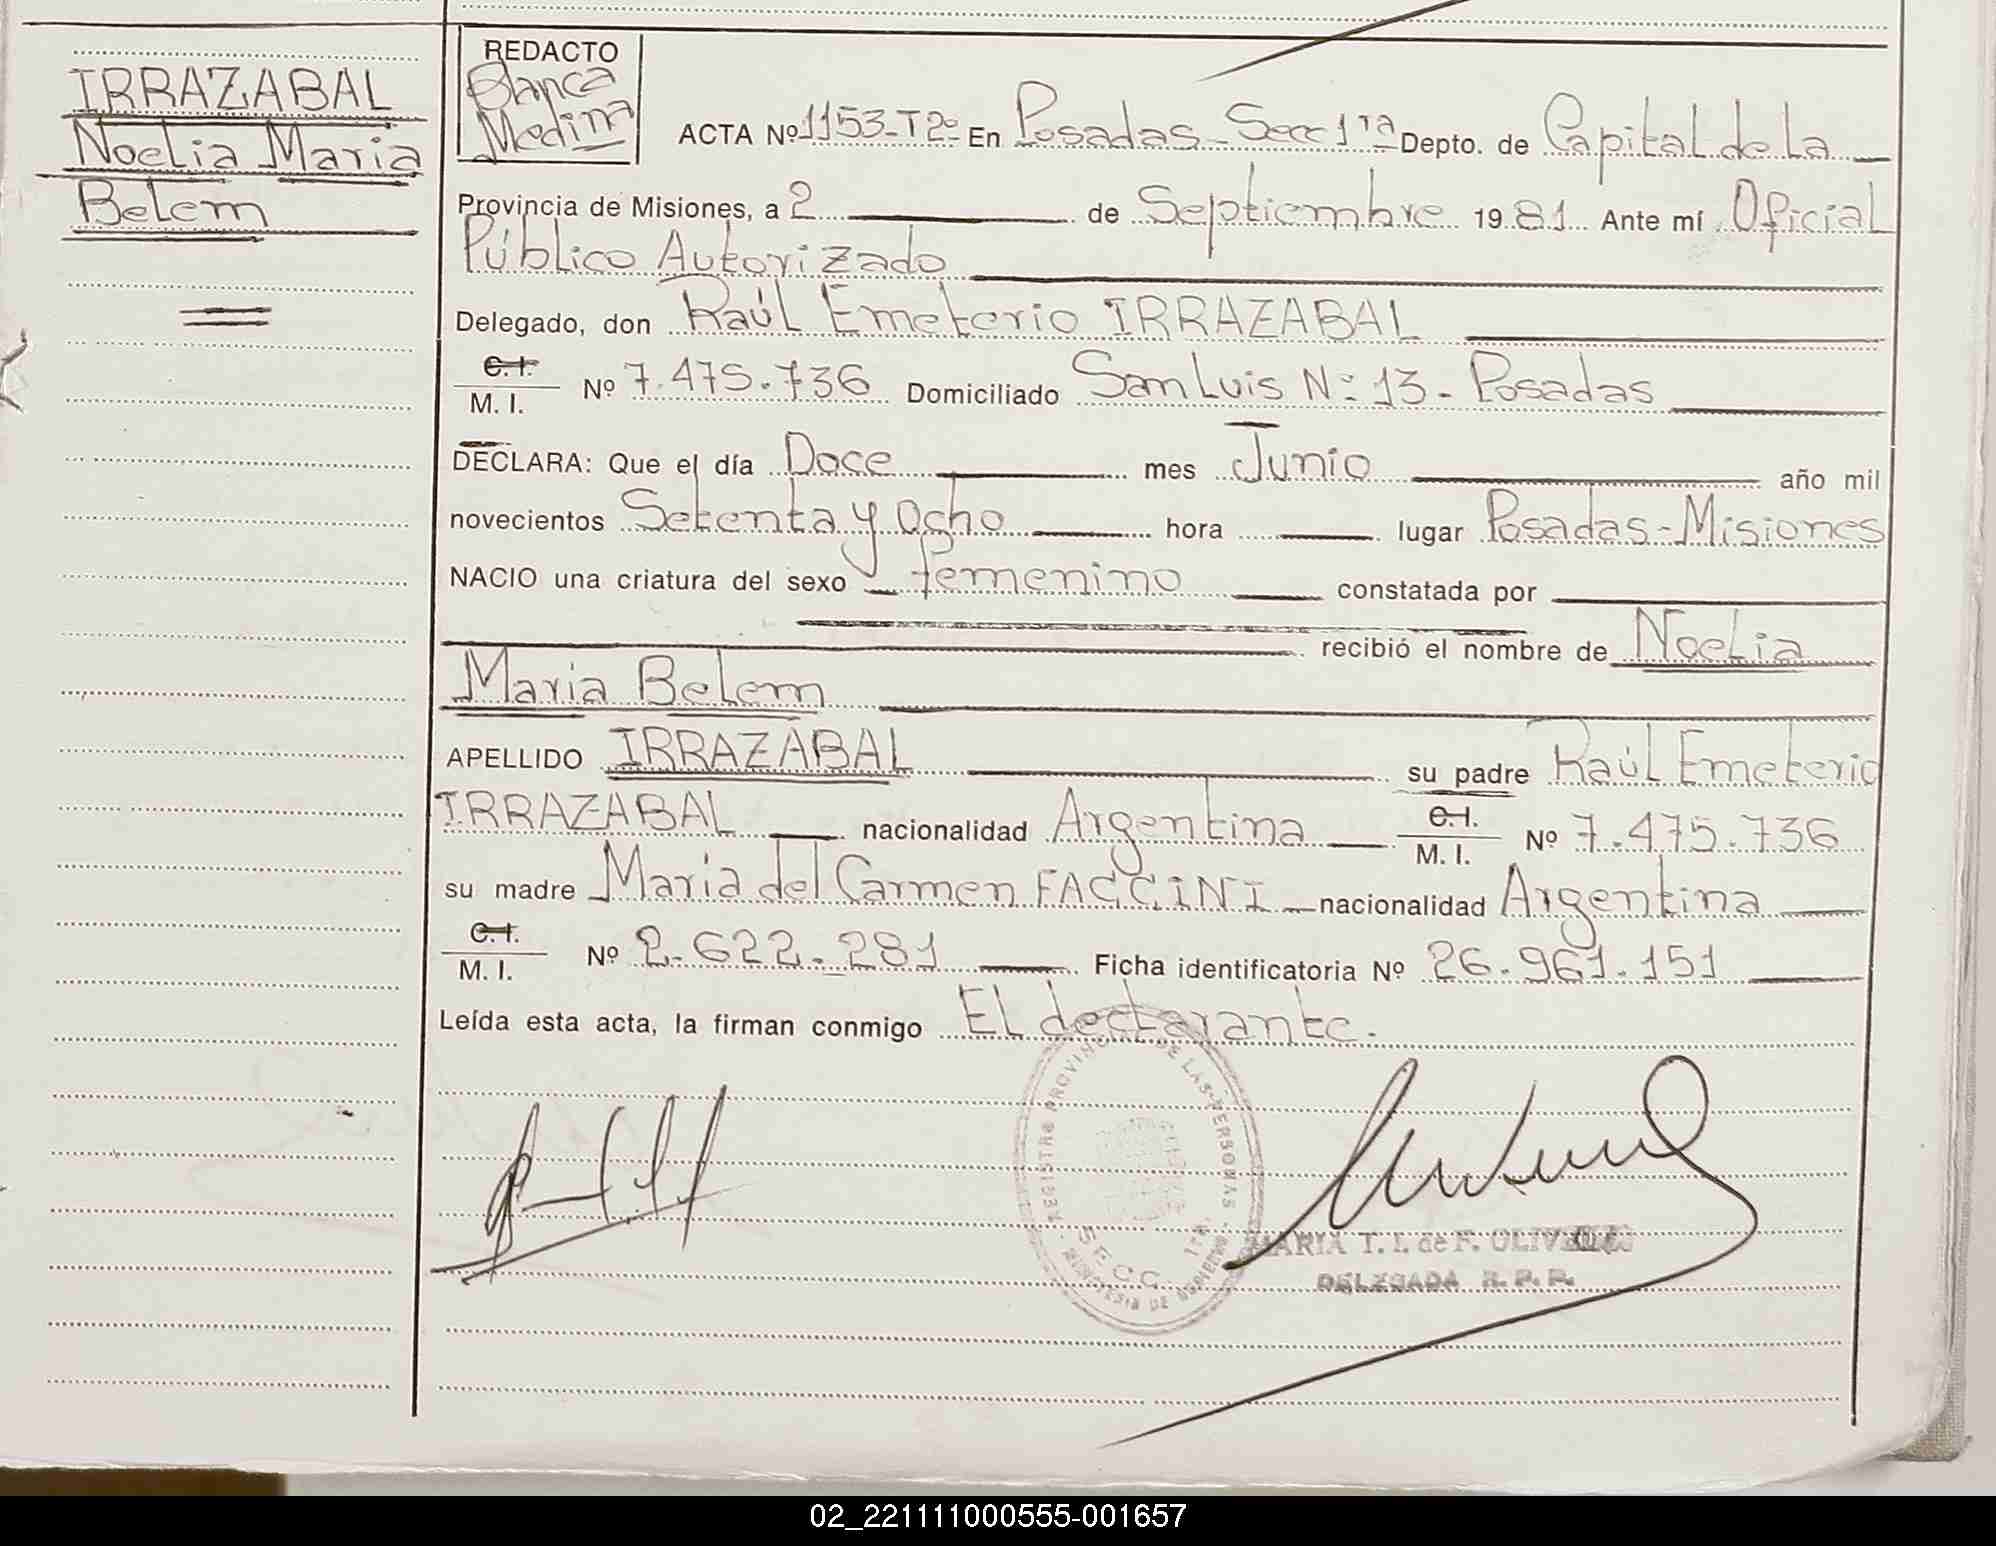 IRRAZABAL
Noelia Maria
Belem
REDACTO
Blanca
Medina
ACTA Nº 1153-T2º En Posadas - Secc 1ra Depto. de Capital de la
Provincia de Misiones, a 2 de Septiembre 1981 Ante mí Oficial
Público Autorizado
Delegado, don Raúl Emeterio IRRAZABAL
C.I.
M. I. Nº 7.475.736 Domiciliado San Luis Nº 13 - Posadas
DECLARA: Que el día Doce mes Junio año mil
novecientos Setenta y Ocho hora lugar Posadas - Misiones
NACIO una criatura del sexo femenino constatada por
recibió el nombre de Noelia
Maria Belem
APELLIDO IRRAZABAL su padre Raúl Emeterio
IRRAZABAL nacionalidad Argentina C.I. M. I. Nº 7.475.736
su madre Maria del Carmen FACCINI nacionalidad Argentina
C.I.
M. I. Nº 2.622.281 Ficha identificatoria Nº 26.961.151
Leída esta acta, la firman conmigo El declarante.
REGISTRO PROVINCIAL DE LAS PERSONAS
SECC. 1RA.
MINISTERIO DE GOBIERNO
MARIA T. I. de F.
DELEGADA R. P. P.
02_221111000555-001657